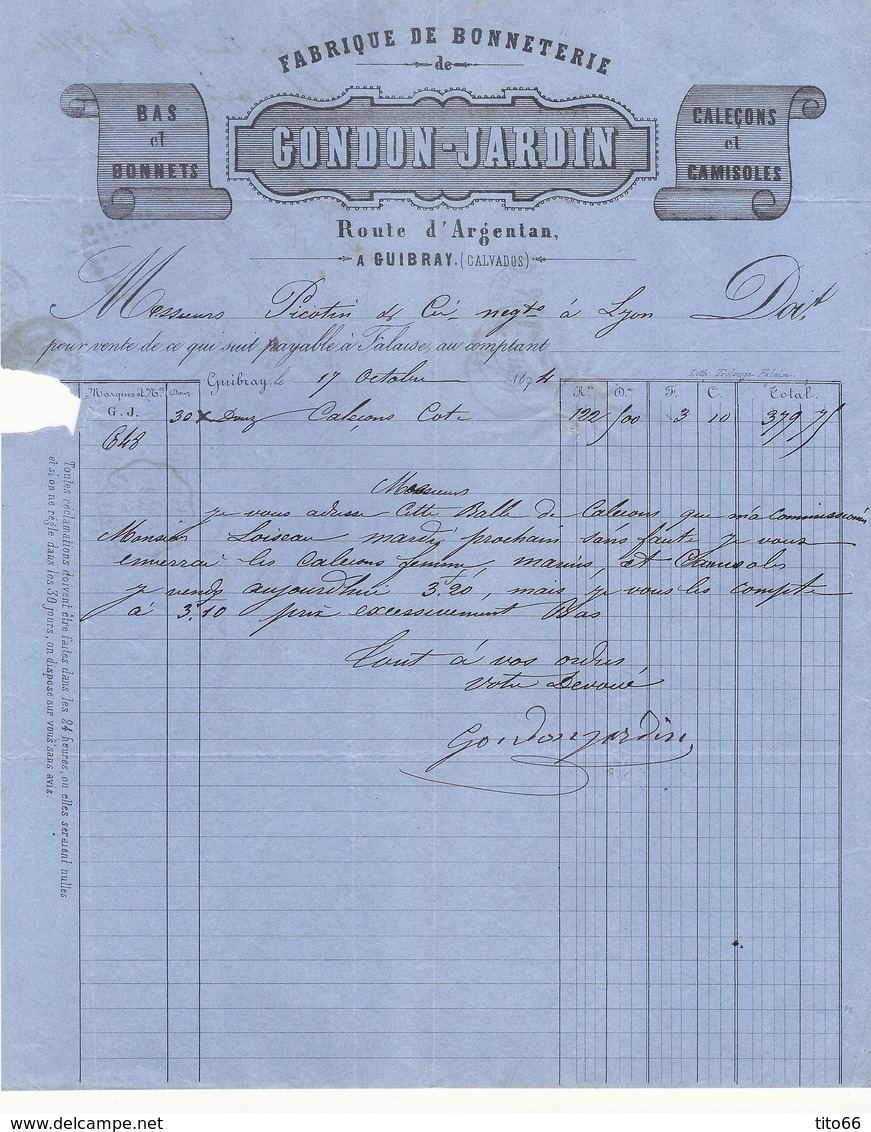 FABRIQUE DE BONNETERIE
de
GONDON-JARDIN
BAS
et
BONNETS
CALEÇONS
et
CAMISOLES
Route d'Argentan,
A GUIBRAY. (CALVADOS)
Messieurs Picotin & Cie negts à Lyon Doit
pour vente de ce qui suit payable à Falaise, au comptant
Lith. Toolouge Falaise.
Guibray, le 17 Octobre 1874
Marques et Nos Douz. Kos Das F. C. Total.
G. J. 30 x Douz Caleçons Cote 122 500 3 10 379 75
648
Messieurs
je vous adresse cette Balle de Calecons que m'a Commissionés
Monsieur Loiseau mardi prochain sans faute je vous
enverrai les Calecons femme, marins, et Chamisoles
je vends aujourdhui 3.20, mais je vous les compte
à 3f.10 prix excessivement Bas
Tout à vos ordres,
Votre Devoué
Gondon jardin
Toutes réclamations doivent être faites dans les 24 heures, ou elles seraient nulles
et si on ne regle dans les 30 jours, on dispose sur vous sans avis.
tito66